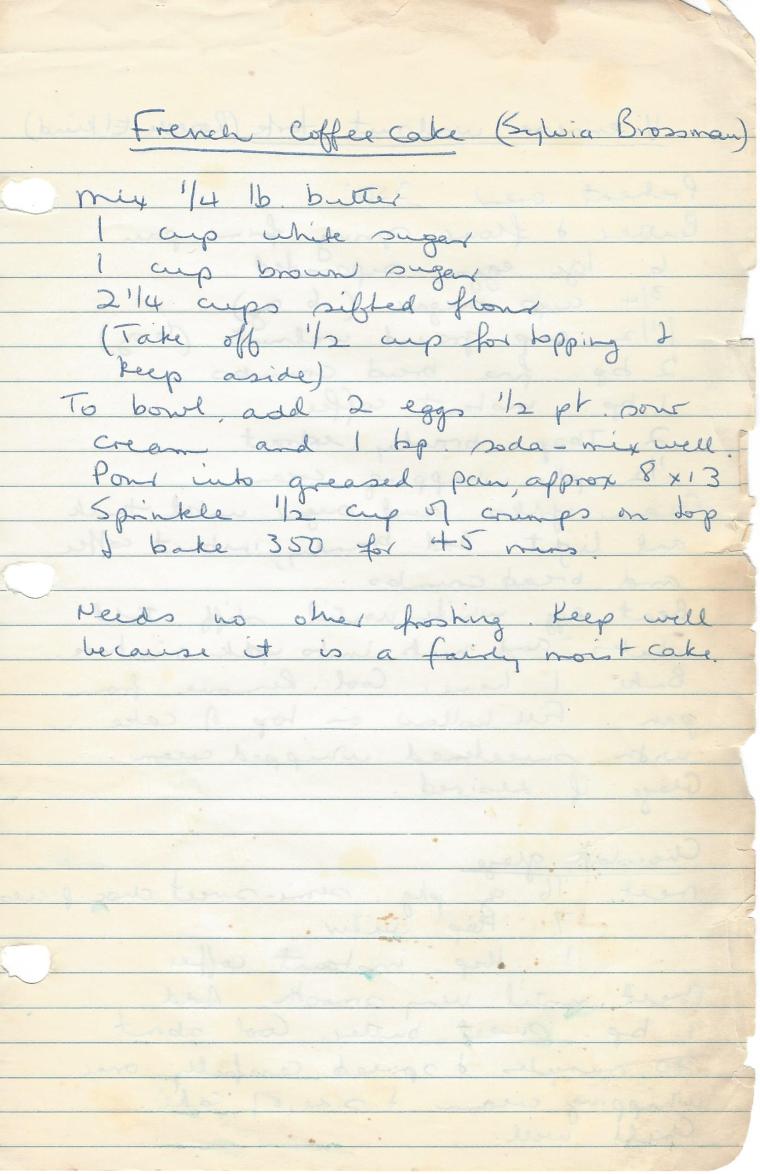 French Coffee cake (Sylvia Brossman)
Mix 1/4 lb. butter
1 cup white sugar
1 cup brown sugar
2 1/4 cups sifted flour
(Take off 1/2 cup for topping &
keep aside)
To bowl, add 2 eggs 1/2 pt. sour
cream and 1 tsp. soda - mix well.
Pour into greased pan, approx 8 x 13
Sprinkle 1/2 cup of crumps on top
& bake 350 for 45 mins.
Needs no other frosting. Keep well
because it is a fairly moist cake.